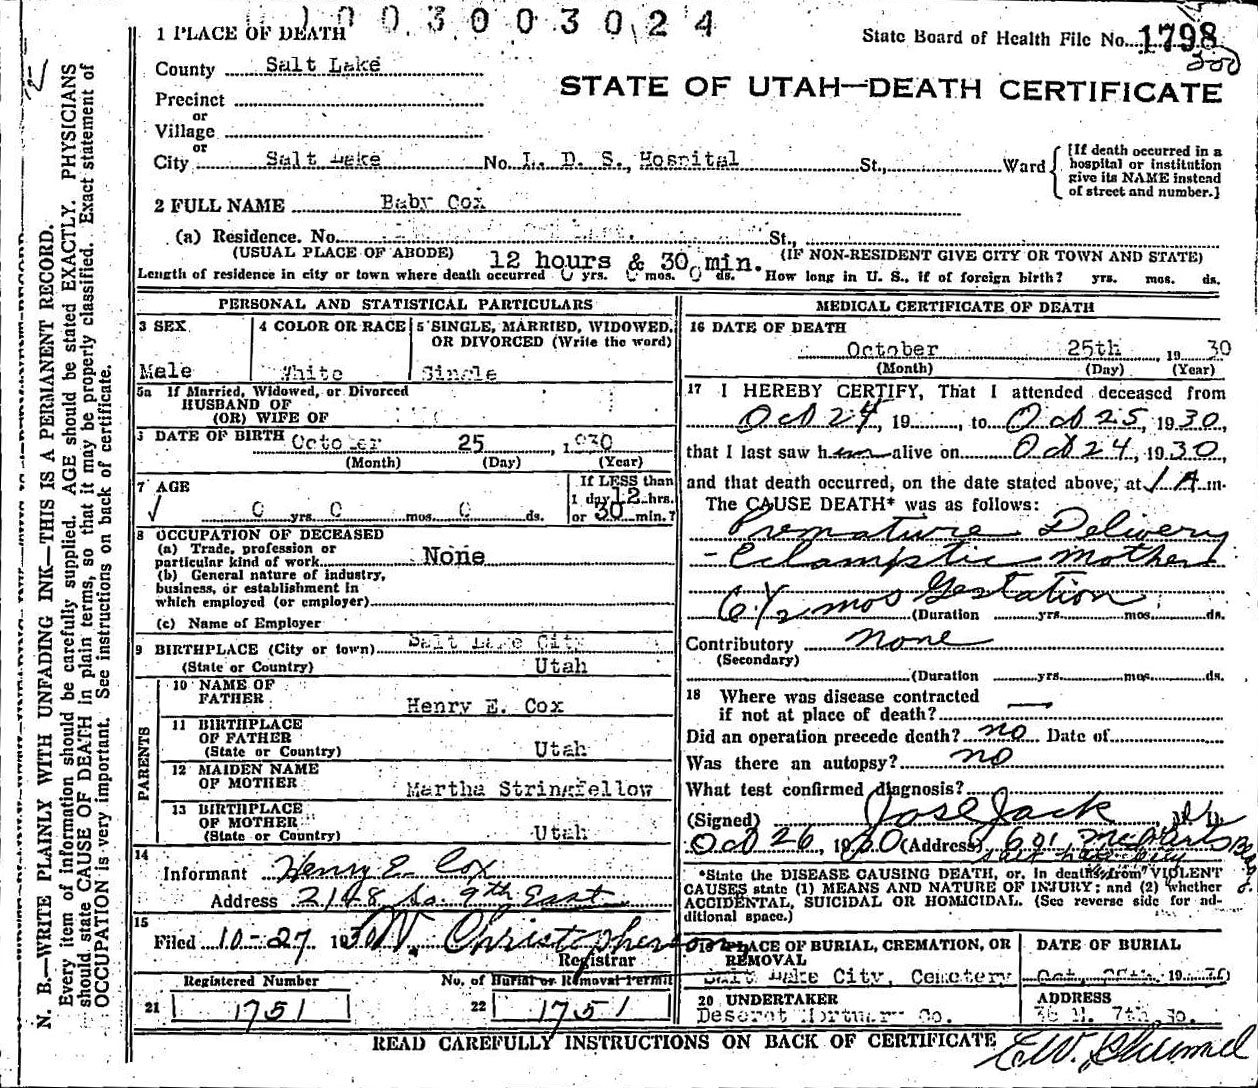 1003003024
1 PLACE OF DEATH
State Board of Health File No. 1798
300
County Salt Lake
STATE OF UTAH—DEATH CERTIFICATE
Precinct
or
Village
or
City Salt Lake No. L. D. S. Hospital St., Ward
[If death occurred in a hospital or institution give its NAME instead of street and number.]
2 FULL NAME Baby Cox
(a) Residence. No. St.,
(USUAL PLACE OF ABODE) (IF NON-RESIDENT GIVE CITY OR TOWN AND STATE)
12 hours & 30 min.
Length of residence in city or town where death occurred 0 yrs. 0 mos. 0 ds. How long in U. S., if of foreign birth? yrs. mos. ds.
PERSONAL AND STATISTICAL PARTICULARS
3 SEX
Male
4 COLOR OR RACE
White
5 SINGLE, MARRIED, WIDOWED, OR DIVORCED (Write the word)
Single
5a If Married, Widowed, or Divorced
HUSBAND OF
(OR) WIFE OF
DATE OF BIRTH October 25, 1930
(Month) (Day) (Year)
7 AGE
0 yrs. 0 mos. 0 ds.
If LESS than
1 day 12 hrs.
or 30 min.?
8 OCCUPATION OF DECEASED
(a) Trade, profession or
particular kind of work None
(b) General nature of industry,
business, or establishment in
which employed (or employer)
(c) Name of Employer
9 BIRTHPLACE (City or town) Salt Lake City
(State or Country) Utah
PARENTS
10 NAME OF
FATHER Henry E. Cox
11 BIRTHPLACE
OF FATHER
(State or Country) Utah
12 MAIDEN NAME
OF MOTHER Martha Stringfellow
13 BIRTHPLACE
OF MOTHER
(State or Country) Utah
14
Informant Henry E. Cox
Address 2148 So. 9th East
15
Filed 10-27 1930 W. Christopherson
Registrar
Registered Number
21 1751
No. of Burial or Removal Permit
22 1751
MEDICAL CERTIFICATE OF DEATH
16 DATE OF DEATH
October 25th, 1930
(Month) (Day) (Year)
17 I HEREBY CERTIFY, That I attended deceased from
Oct 24, 19 , to Oct 25, 1930,
that I last saw him alive on Oct 24, 1930,
and that death occurred, on the date stated above, at 1 A m.
The CAUSE DEATH* was as follows:
Premature Delivery
- Eclamptic Mother
6 1/2 mos Gestation
(Duration yrs. mos. ds.
Contributory none
(Secondary)
(Duration yrs. mos. ds.
18 Where was disease contracted
if not at place of death? —
Did an operation precede death? no Date of
Was there an autopsy? no
What test confirmed diagnosis?
(Signed) Jos E Jack
Oct 26, 1930 (Address) 601
Salt Lake City
*State the DISEASE CAUSING DEATH, or, in deaths from VIOLENT
CAUSES state (1) MEANS AND NATURE OF INJURY; and (2) whether
ACCIDENTAL, SUICIDAL OR HOMICIDAL. (See reverse side for ad-
ditional space.)
19 PLACE OF BURIAL, CREMATION, OR
REMOVAL
Salt Lake City, Cemetery
DATE OF BURIAL
Oct. 1930
20 UNDERTAKER
Deseret Mortuary Co.
ADDRESS
36 7th So.
READ CAREFULLY INSTRUCTIONS ON BACK OF CERTIFICATE
N. B.—WRITE PLAINLY WITH UNFADING INK—THIS IS A PERMANENT RECORD.
Every item of information should be carefully supplied. AGE should be stated EXACTLY. PHYSICIANS
should state CAUSE OF DEATH in plain terms, so that it may be properly classified. Exact statement of
OCCUPATION is very important. See instructions on back of certificate.